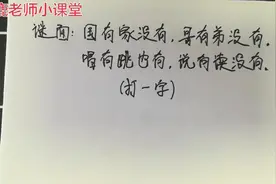 老师小课堂
谜面:国有家没有,哥有弟没有。
唱有跳也有,说有读没有。
(打一字)